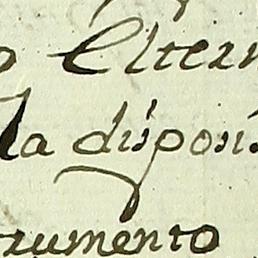 o Elter
la dispon
rumento